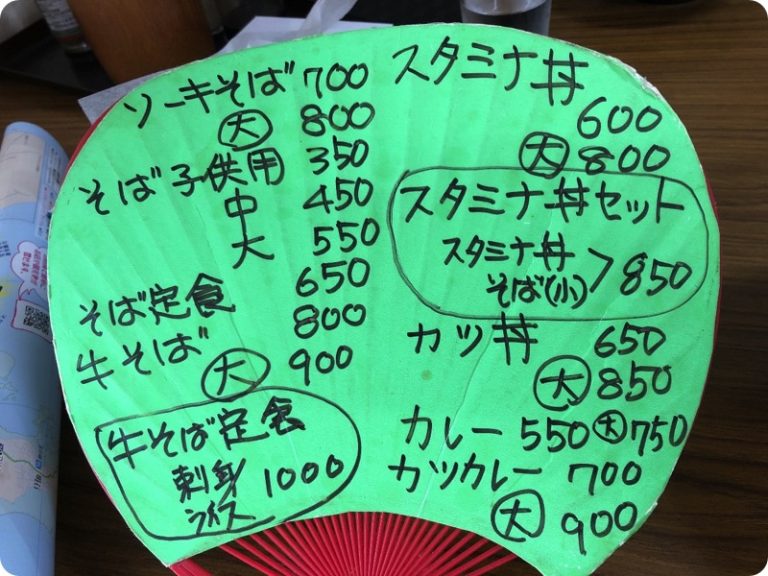 ソーキそば 700
大 800
そば子供用 350
中 450
大 550
そば定食 650
牛そば 800
大 900
牛そば定食
刺身
ライス
1000
スタミナ丼
600
大 800
スタミナ丼セット
スタミナ丼
そば(小) > 850
カツ丼 650
大 850
カレー 550 大 750
カツカレー 700
大 900